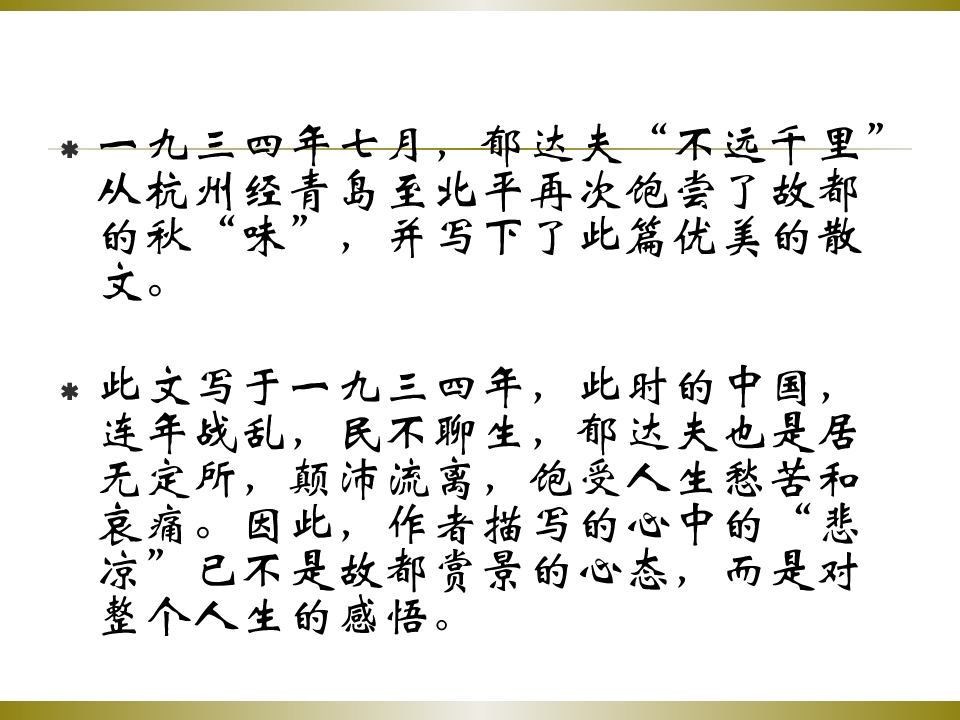 一九三四年七月，郁达夫“不远千里”
从杭州经青岛至北平再次饱尝了故都
的秋“味”，并写下了此篇优美的散
文。
此文写于一九三四年，此时的中国，
连年战乱，民不聊生，郁达夫也是居
无定所，颠沛流离，饱受人生愁苦和
哀痛。因此，作者描写的心中的“悲
凉”已不是故都赏景的心态，而是对
整个人生的感悟。